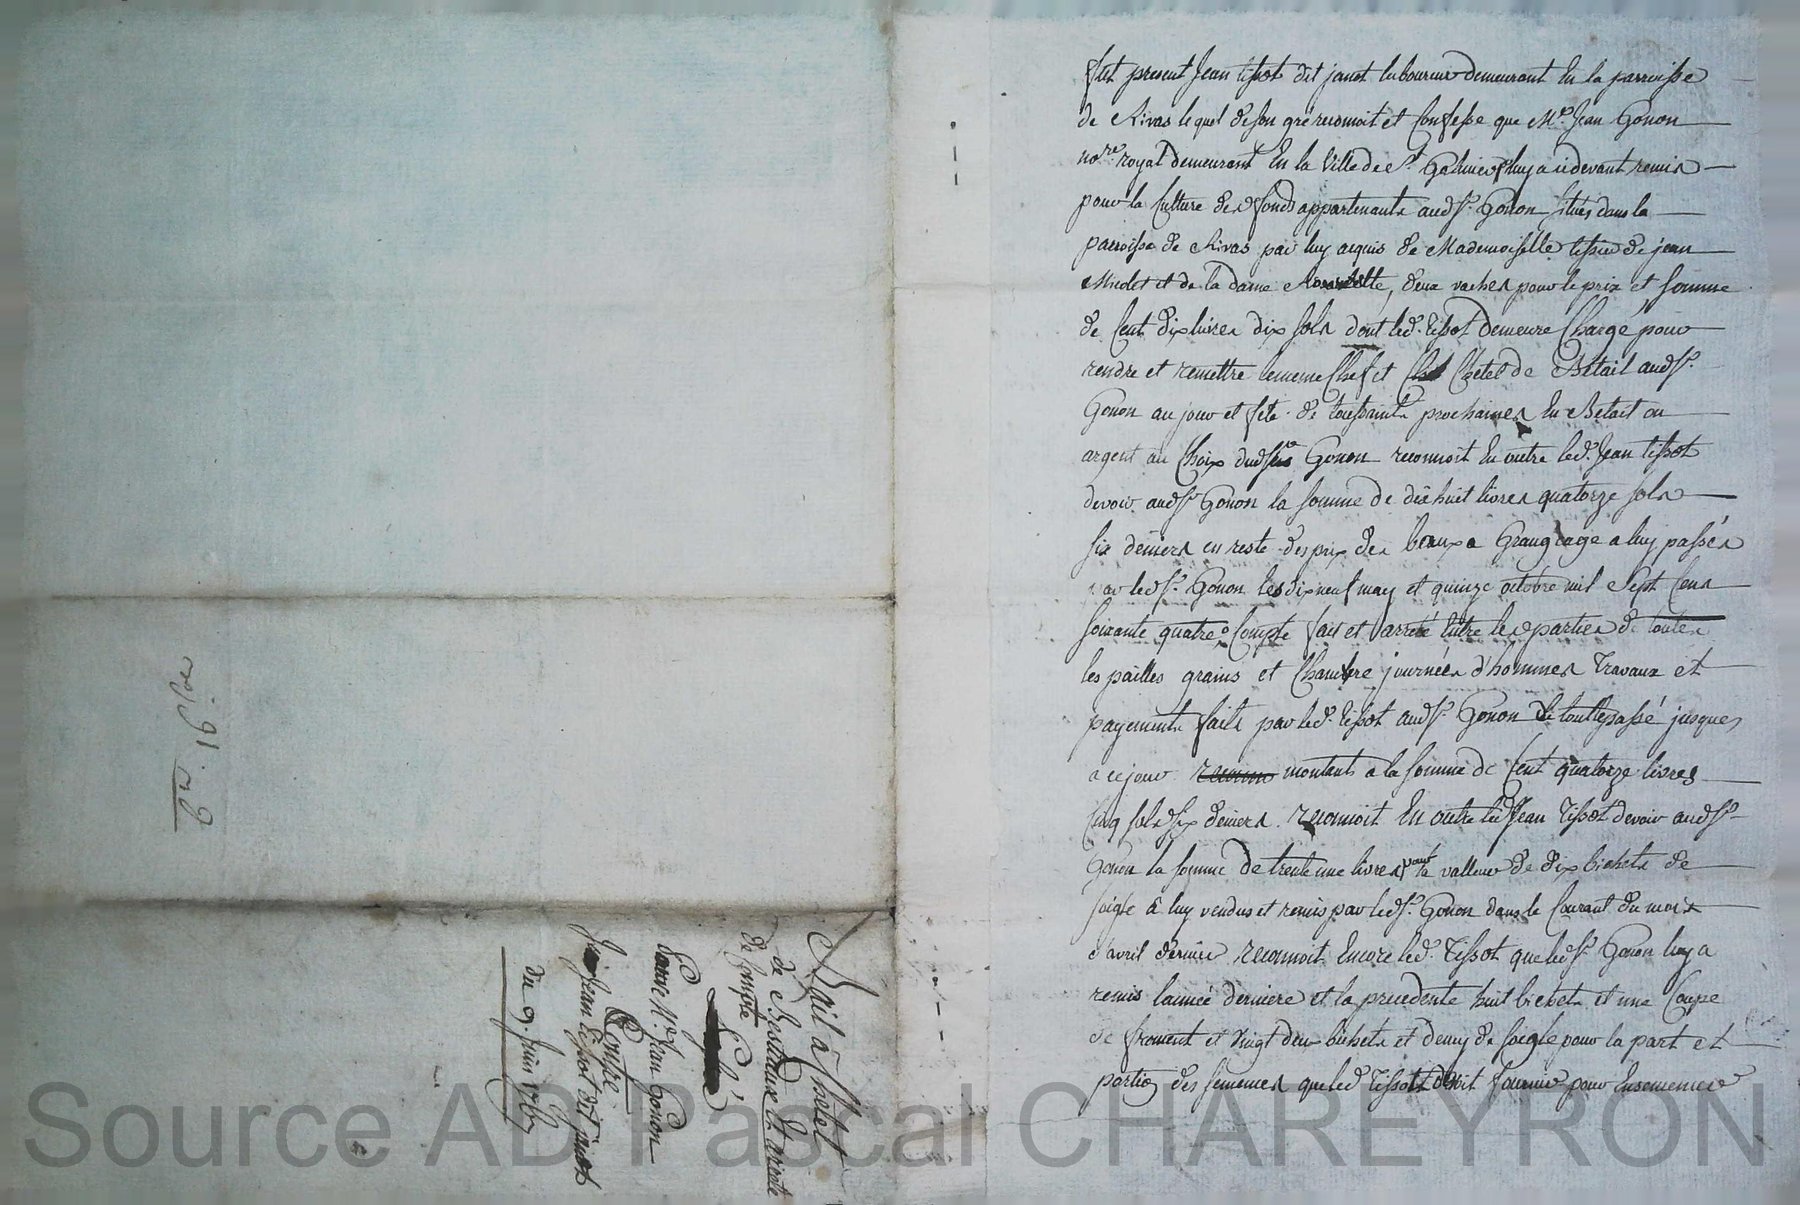 fut present Jean tissot dit janot laboureur demeurant En la parroisse
de Rivas lequel de son gré reconnoit et Confesse que Mre. Jean Gonon
nore. royal demeurant En la Ville de St. Galmier luy a cidevant remis
pour la Culture des fonds appartenants audsr. Gonon situés dans la
parroisse de Rivas par luy acquis de Mademoiselle tissier de jean
Miolet et de la dame, deux vaches pour le prix et somme
de Cent dix livres dix sols dont led. tissot demeure Chargé pour
rendre et remettre lememe Chef et Chetel de Betail audsr.
Gonon au jour et fete de toussaints prochaines En Betail ou
argent au Choix dudsr Gonon reconnoit En outre led. Jean tissot
devoir audsr Gonon la somme de dix huit livres quatorze sols
six deniers en reste des prix des baux a Grangeage a luy passés
par ledsr. Gonon les dix neuf may et quinze octobre mil Sept Cens
soixante quatre, Compte fait et arreté Entre les parties de toutes
les pailles grains et Chanvre journées d'hommes Travaux et
payements faits par led. tissot audsr. Gonon de tout le passé jusques
a ce jour montants a la somme de Cent quatorze livres
Cinq sols six deniers. reconnoit En outre led Jean Tissot devoir audsr
Gonon la somme de trente une livres pour la valleur de dix bichets de
soigle à luy vendus et remis par ledsr. Gonon dans le Courant du mois
d'avril dernier reconnoit Encore led. Tissot que ledsr. Gonon luy a
remis lannée derniere et la precedente huit bichets et une Coupe
de froment et Vingt deux bichets et demy de Soigle pour la part et
portion des semences que led Tissot doit fournir pour Ensemencer
Bail à Chetel
de Bestiaux Et arreté
de Compte
Pour Me. Jean Gonon
Contre
Jean Tissot dit janot
du 9. juin 1765
Source AD Pascal CHAREYRON